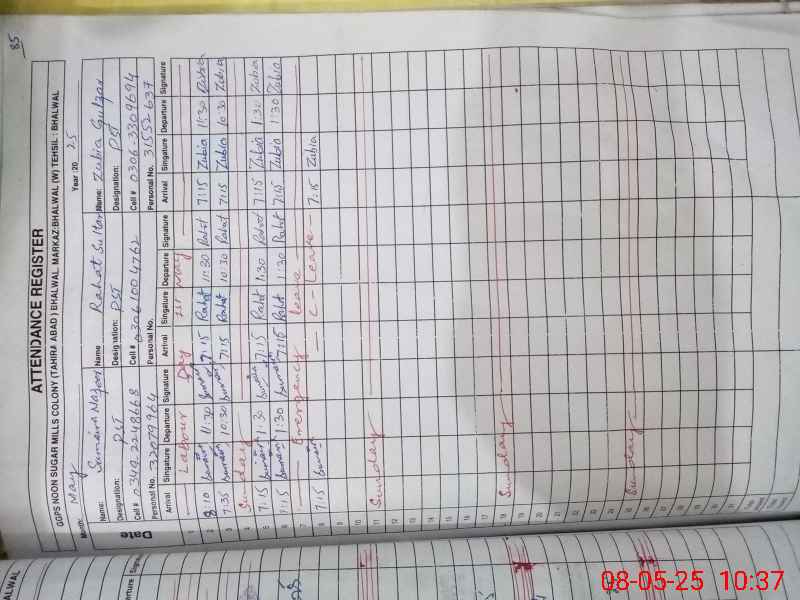 85
ATTENDANCE REGISTER
GGPS NOON SUGAR MILLS COLONY (TAHIRA ABAD) BHALWAL. MARKAZ:BHALWAL (W) TEHSIL : BHALWAL
Month: May Year :20 25
Name: Sumaira Nazeer Name Rahat Sultan Name: Zubia Gulzar
Designation: PST Designation: PST Designation: PST
Cell # 0349 2248668 Cell # 03061004762 Cell # 0306-3309694
Personal No. 32079964 Personal No. Personal No. 31552637
Date Arrival Singature Departure Signature Arrival Singature Departure Signature Arrival Singature Departure Signature
1 Labour Day 1st May
2 8:10 Sumaira 11:30 Sumaira 7:15 Rahat 11:30 Rahat 7:15 Zubia 11:30 Zubia
3 7:35 Sumaira 10:30 Sumaira 7:15 Rahat 10:30 Rahat 7:15 Zubia 10:30 Zubia
4 Sunday
5 7:15 Sumaira 1:30 Sumaira 7:15 Rahat 1:30 Rahat 7:15 Zubia 1:30 Zubia
6 7:15 Sumaira 1:30 Sumaira 7:15 Rahat 1:30 Rahat 7:15 Zubia 1:30 Zubia
7 Emergency Leave
8 7:15 Sumaira C-Leave 7:15 Zubia
9
10
11 Sunday
12
13
14
15
16
17
18 Sunday
19
20
21
22
23
24
25 Sunday
26
27
28
29
30
31
BHALWAL
08-05-25 10:37